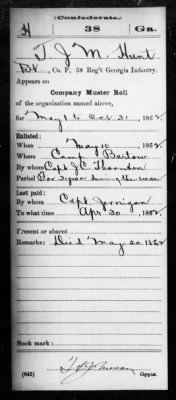 Confederate.
H 38 Ga.
T. J. M. Hunt
Co. F, 38 Reg't Georgia Infantry.
Appears on
Company Muster Roll
of the organization named above,
for May 1 to Oct 31, 1862
Enlisted:
When May 10 1862
Where Camp Bartow
By whom Capt J.C. Thornton
Period For 3 years or during the war
Last paid:
By whom Capt. Jernigan
To what time Apr 30, 1862.
Present or absent
Remarks: Died May 20 1862
Book mark:
(642) Copyist.